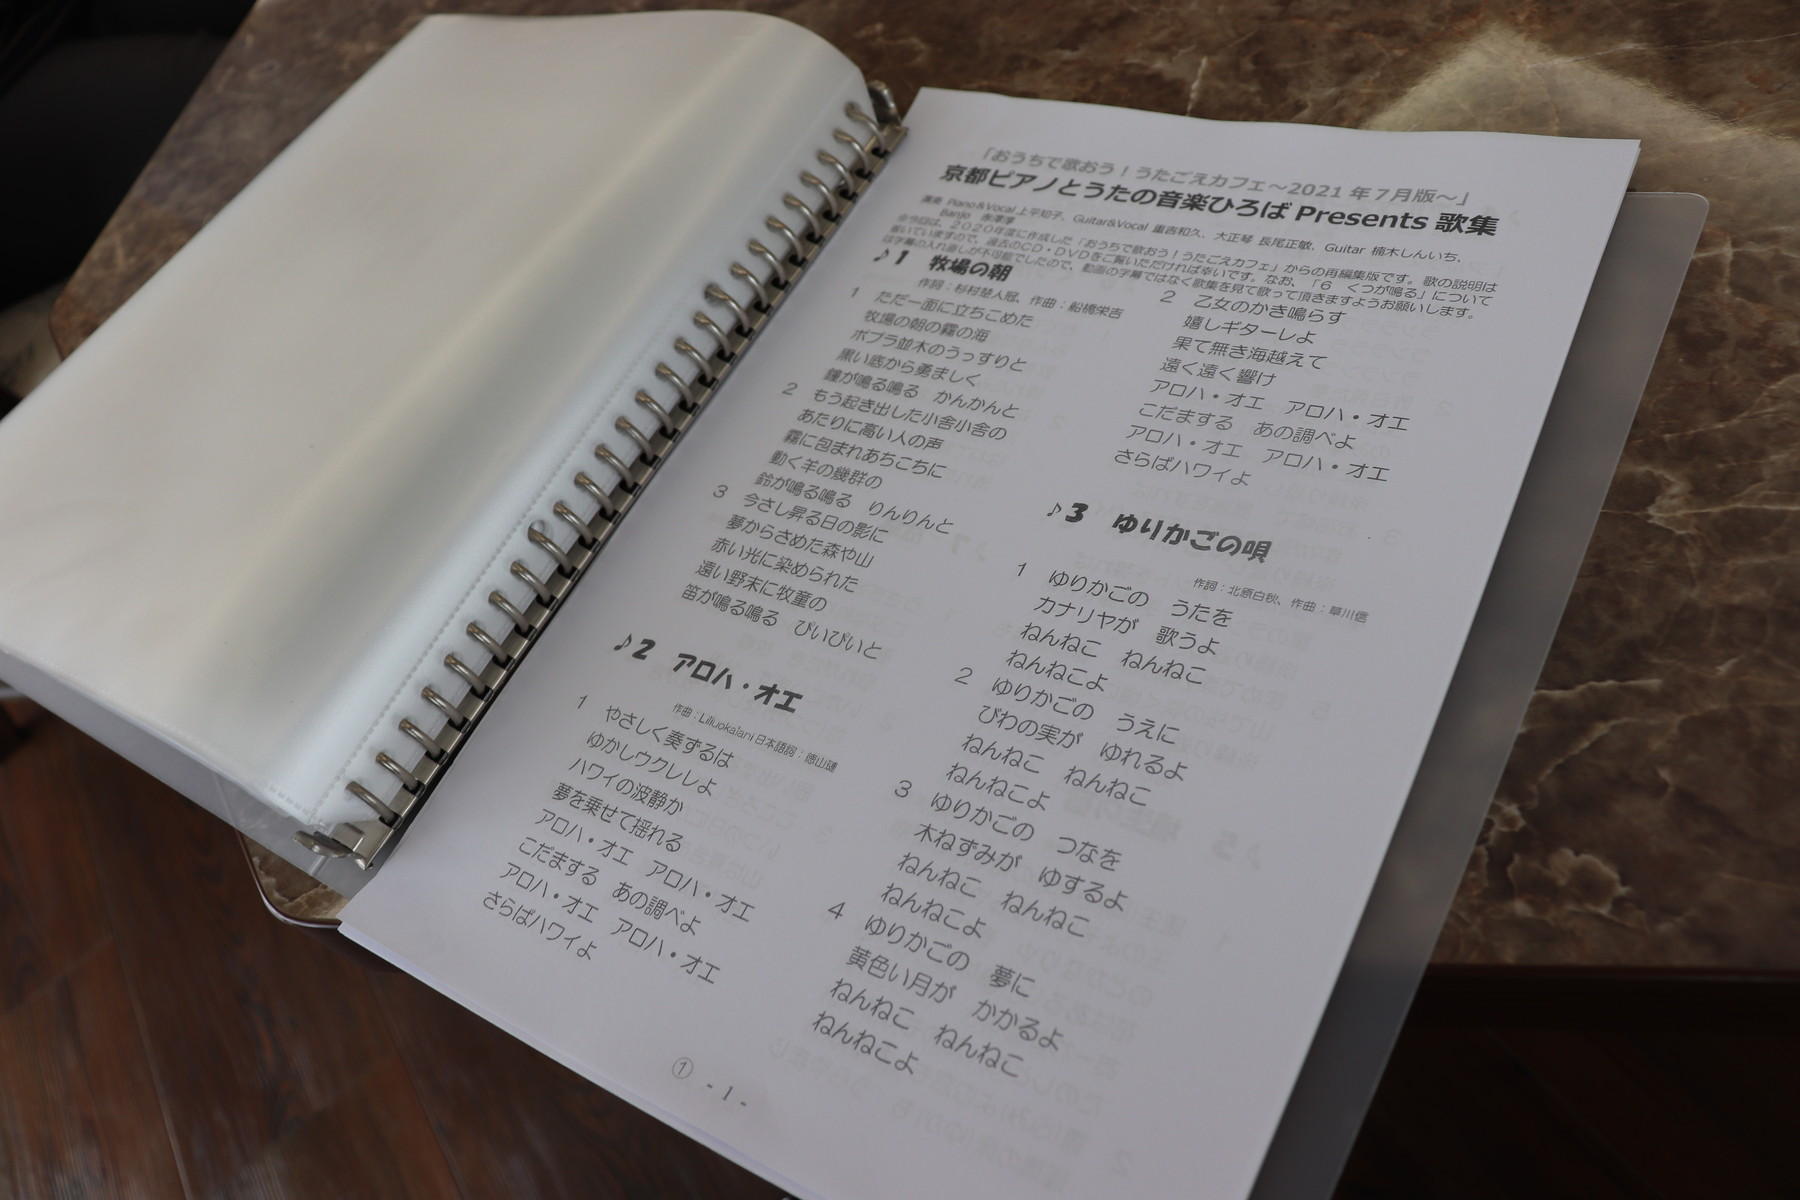 「おうちで歌おう！うたごえカフェ～2021年7月版～」
京都ピアノとうたの音楽ひろば Presents 歌集
演奏 Piano&Vocal 上平知子、Guitar&Vocal 重吉和久、大正琴 長尾正敏、Guitar 楠木しんいち、
Banjo 赤澤淳
☆今回は、2020年度に作成した「おうちで歌おう！うたごえカフェ」からの再編集版です。歌の説明は
省いていますので、過去のCD・DVDをご覧いただければ幸いです。なお、「6 くつが鳴る」について
は字幕の入れ直しが不可能でしたので、動画の字幕ではなく歌集を見て歌って頂きますようお願いします。
♪1 牧場の朝
作詞：杉村楚人冠、作曲：船橋栄吉
1 ただ一面に立ちこめた
牧場の朝の霧の海
ポプラ並木のうっすりと
黒い底から勇ましく
鐘が鳴る鳴る かんかんと
2 もう起き出した小舎小舎の
あたりに高い人の声
霧に包まれあちこちに
動く羊の幾群の
鈴が鳴る鳴る りんりんと
3 今さし昇る日の影に
夢からさめた森や山
赤い光に染められた
遠い野末に牧童の
笛が鳴る鳴る ぴいぴいと
♪2 アロハ・オエ
作曲：Liliuokalani 日本語詞：徳山璉
1 やさしく奏ずるは
ゆかしウクレレよ
ハワイの波静か
夢を乗せて揺れる
アロハ・オエ アロハ・オエ
こだまする あの調べよ
アロハ・オエ アロハ・オエ
さらばハワイよ
2 乙女のかき鳴らす
嬉しギターレよ
果て無き海越えて
遠く遠く響け
アロハ・オエ アロハ・オエ
こだまする あの調べよ
アロハ・オエ アロハ・オエ
さらばハワイよ
♪3 ゆりかごの唄
作詞：北原白秋、作曲：草川信
1 ゆりかごの うたを
カナリヤが 歌うよ
ねんねこ ねんねこ
ねんねこよ
2 ゆりかごの うえに
びわの実が ゆれるよ
ねんねこ ねんねこ
ねんねこよ
3 ゆりかごの つなを
木ねずみが ゆするよ
ねんねこ ねんねこ
ねんねこよ
4 ゆりかごの 夢に
黄色い月が かかるよ
ねんねこ ねんねこ
ねんねこよ
① - 1 -